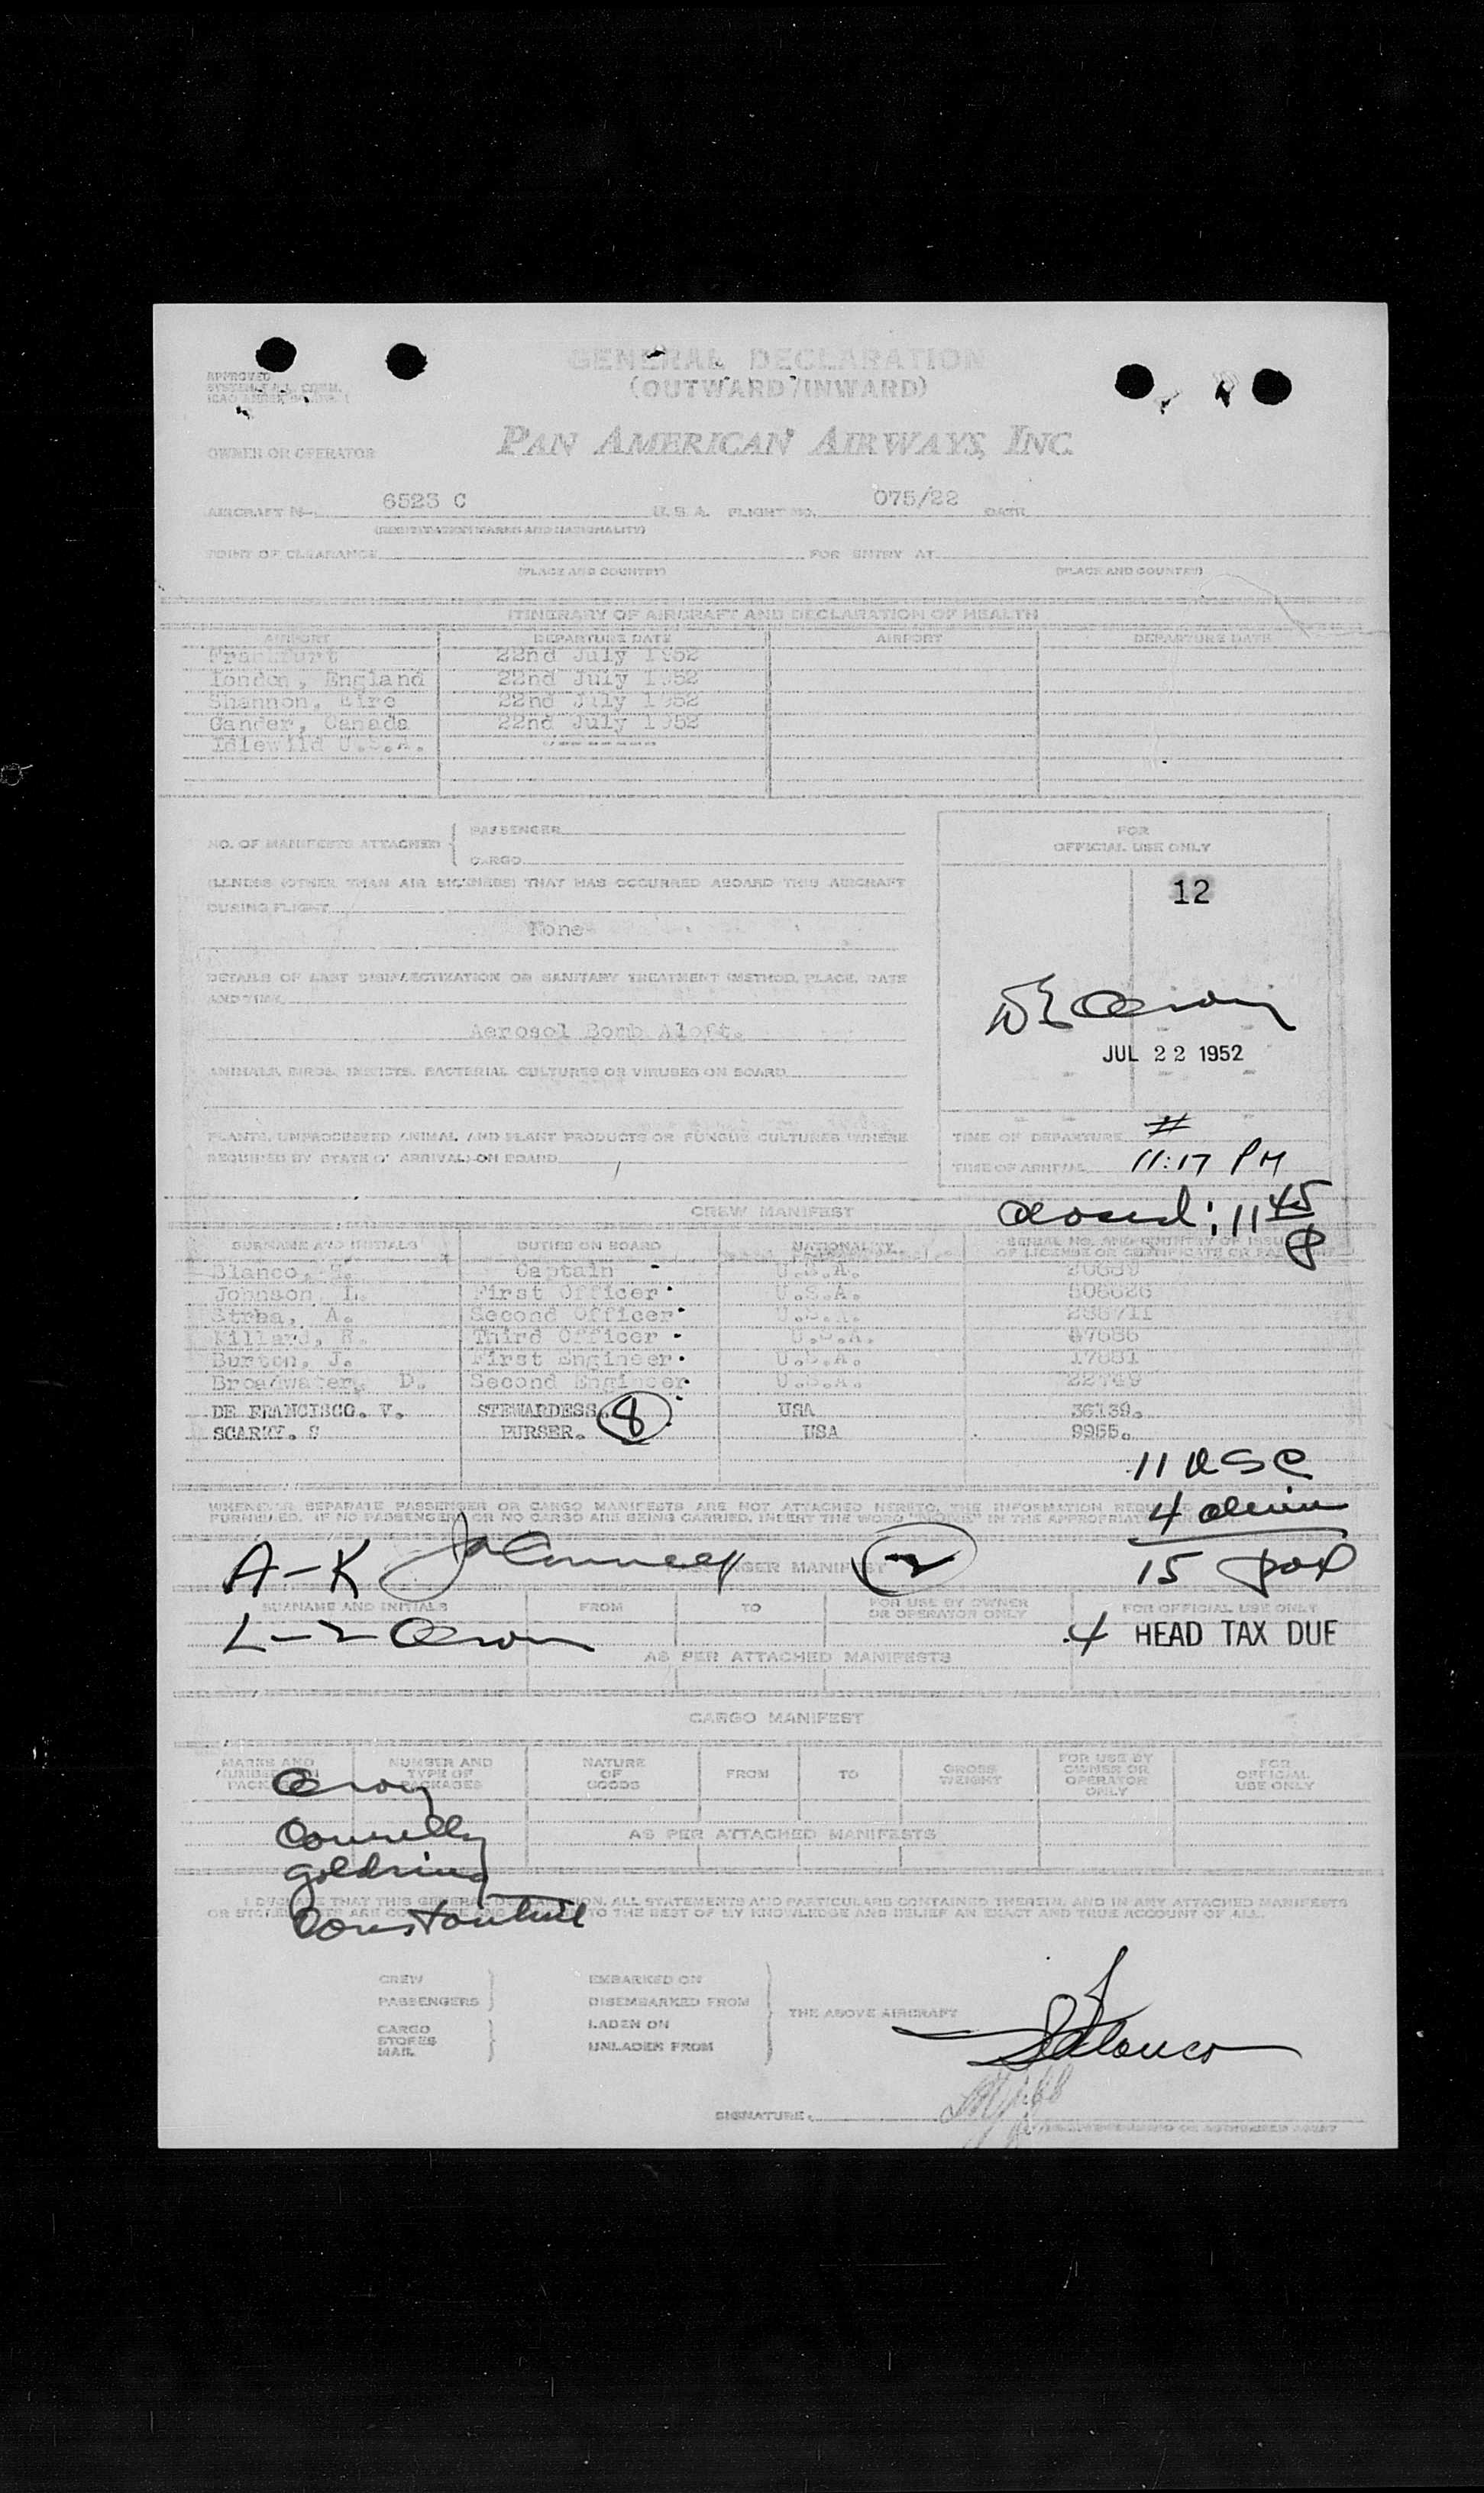 GENERAL DECLARATION
(OUTWARD/INWARD)
APPROVED
OWNER OR OPERATOR
PAN AMERICAN AIRWAYS, INC.
AIRCRAFT N— 6523 C U.S.A. FLIGHT NO. 075/22 DATE
(REGISTRATION MARKS AND NATIONALITY)
POINT OF CLEARANCE FOR ENTRY AT
(PLACE AND COUNTRY) (PLACE AND COUNTRY)
ITINERARY OF AIRCRAFT AND DECLARATION OF HEALTH
AIRPORT DEPARTURE DATE AIRPORT DEPARTURE DATE
Frankfurt 22nd July 1952
London, England 22nd July 1952
Shannon, Eire 22nd July 1952
Gander, Canada 22nd July 1952
Idlewild U.S.A.
NO. OF MANIFESTS ATTACHED { PASSENGER
CARGO
FOR
OFFICIAL USE ONLY
ILLNESS (OTHER THAN AIR SICKNESS) THAT HAS OCCURRED ABOARD THIS AIRCRAFT
DURING FLIGHT
None
12
DETAILS OF LAST DISINSECTIZATION OR SANITARY TREATMENT (METHOD, PLACE, DATE
AND TIME)
Aerosol Bomb Aloft.
JUL 22 1952
ANIMALS, BIRDS, INSECTS, BACTERIAL CULTURES OR VIRUSES ON BOARD
PLANTS, UNPROCESSED ANIMAL AND PLANT PRODUCTS OR FUNGUS CULTURES (WHERE
REQUIRED BY STATE OF ARRIVAL) ON BOARD
TIME OF DEPARTURE #
TIME OF ARRIVAL 11:17 PM
closed: 11 45 P
CREW MANIFEST
SURNAME AND INITIALS DUTIES ON BOARD NATIONALITY
Blanco, Captain U.S.A.
Johnson, L. First Officer U.S.A. 508626
Strba, A. Second Officer U.S.A.
Killard, R. Third Officer U.S.A.
Burton, J. First Engineer U.S.A.
Broadwater, D. Second Engineer U.S.A. 22749
DE FRANCISCO. V. STEWARDESS. 8 USA 36139.
SCARRY. S PURSER. USA 9965.
11 USC
4 alien
15 pax
WHENEVER SEPARATE PASSENGER OR CARGO MANIFESTS ARE NOT ATTACHED HERETO, THE INFORMATION REQUIRED
FURNISHED. IF NO PASSENGERS OR NO CARGO ARE BEING CARRIED, INSERT THE WORD "NONE" IN THE APPROPRIATE
A-K PASSENGER MANIFEST 2
SURNAME AND INITIALS FROM TO FOR USE BY OWNER
OR OPERATOR ONLY FOR OFFICIAL USE ONLY
L-Z
4 HEAD TAX DUE
AS PER ATTACHED MANIFESTS
CARGO MANIFEST
MARKS AND NUMBERS ON PACKAGES NUMBER AND TYPE OF PACKAGES NATURE OF GOODS FROM TO GROSS WEIGHT FOR USE BY OWNER OR OPERATOR ONLY FOR OFFICIAL USE ONLY
Connelly
AS PER ATTACHED MANIFESTS
Goldring
Constantine
I DECLARE THAT THIS GENERAL DECLARATION, ALL STATEMENTS AND PARTICULARS CONTAINED THEREIN, AND IN ANY ATTACHED MANIFESTS
OR STORES LISTS ARE COMPLETE AND TO THE BEST OF MY KNOWLEDGE AND BELIEF AN EXACT AND TRUE ACCOUNT OF ALL.
CREW
PASSENGERS
CARGO
STORES
MAIL
EMBARKED ON
DISEMBARKED FROM
LADEN ON
UNLADEN FROM
THE ABOVE AIRCRAFT
SIGNATURE